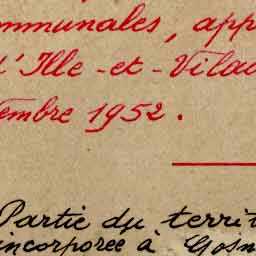 ommunales, app
d'Ille-et-Vilai
embre 1952.
Partie du territ
incorporée à Gosn